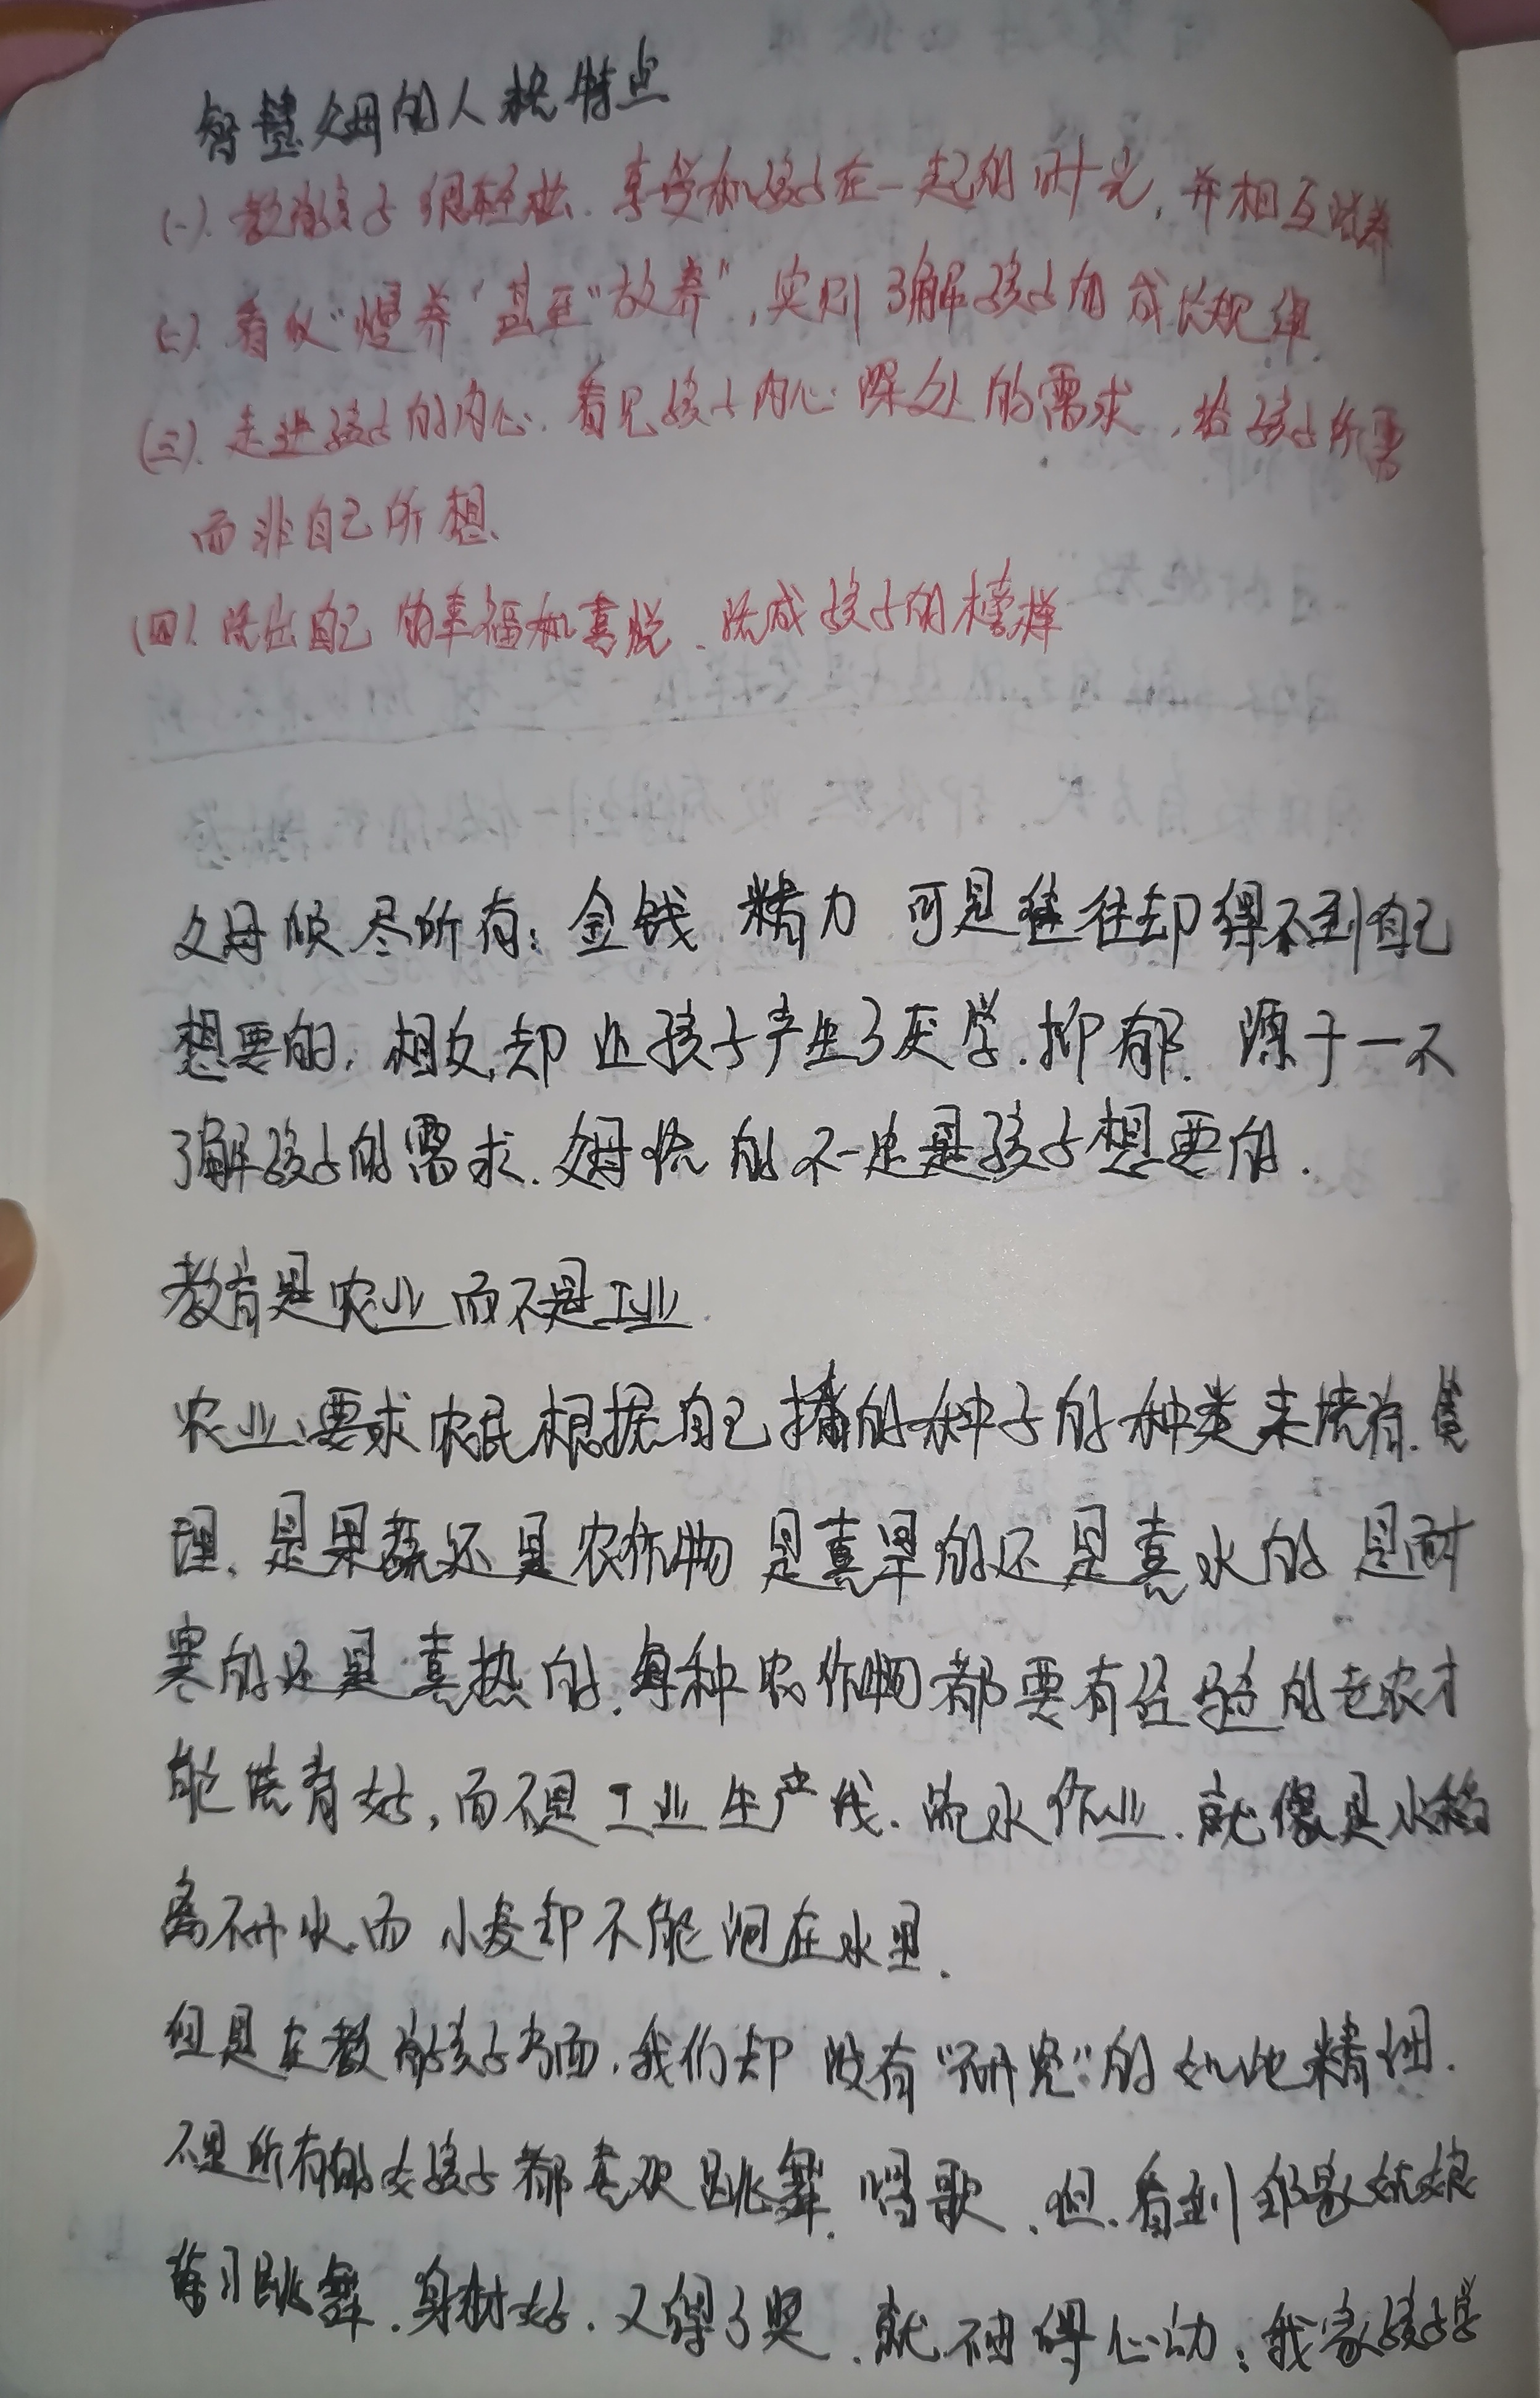 智慧父母的人格特点
(一).教育孩子很轻松.享受和孩子在一起的时光,并相互滋养
(二).看似"慢养"甚至"放养",实则了解孩子的成长规律.
(三).走进孩子的内心.看见孩子内心深处的需求,给孩子所需
而非自己所想.
(四).活出自己的幸福和喜悦.活成孩子的榜样
父母倾尽所有:金钱 精力 可是往往却得不到自己
想要的,相反,却让孩子产生了厌学.抑郁.源于一不
了解孩子的需求.父母给的不一定是孩子想要的.
教育是农业而不是工业.
农业,要求农民根据自己播的种子的种类来培育.管
理.是果蔬还是农作物 是喜旱的还是喜水的 是耐
寒的还是喜热的.每种农作物都要有经验的老农才
能培育好,而不是工业生产线.流水作业.就像是水稻
离不开水,而小麦却不能泡在水里.
但是在教育孩子方面,我们却没有"研究"的如此精细.
不是所有的女孩子都喜欢跳舞.唱歌.但.看到邻家姑娘
练习跳舞.身材好.又得了奖.就不由得心动:我家孩子学